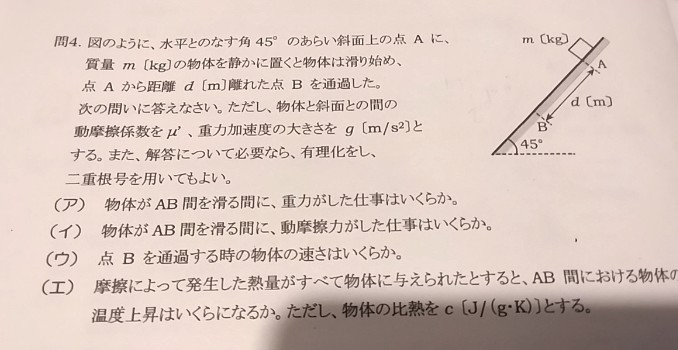 問4. 図のように、水平とのなす角 45° のあらい斜面上の点 A に、
質量 m〔kg〕の物体を静かに置くと物体は滑り始め、
点 A から距離 d〔m〕離れた点 B を通過した。
次の問いに答えなさい。ただし、物体と斜面との間の
動摩擦係数をμ'、重力加速度の大きさを g〔m/s²〕と
する。また、解答について必要なら、有理化をし、
二重根号を用いてもよい。
m〔kg〕
A
d〔m〕
B
45°
(ア) 物体が AB 間を滑る間に、重力がした仕事はいくらか。
(イ) 物体が AB 間を滑る間に、動摩擦力がした仕事はいくらか。
(ウ) 点 B を通過する時の物体の速さはいくらか。
(エ) 摩擦によって発生した熱量がすべて物体に与えられたとすると、AB 間における物体の
温度上昇はいくらになるか。ただし、物体の比熱を c〔J/(g・K)〕とする。